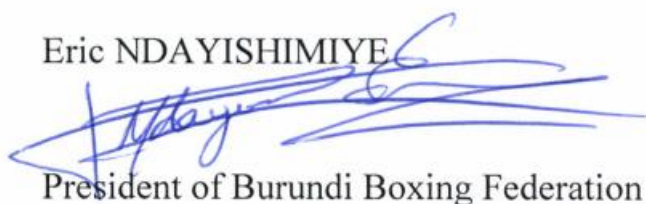 Eric NDAYISHIMIYE
President of Burundi Boxing Federation